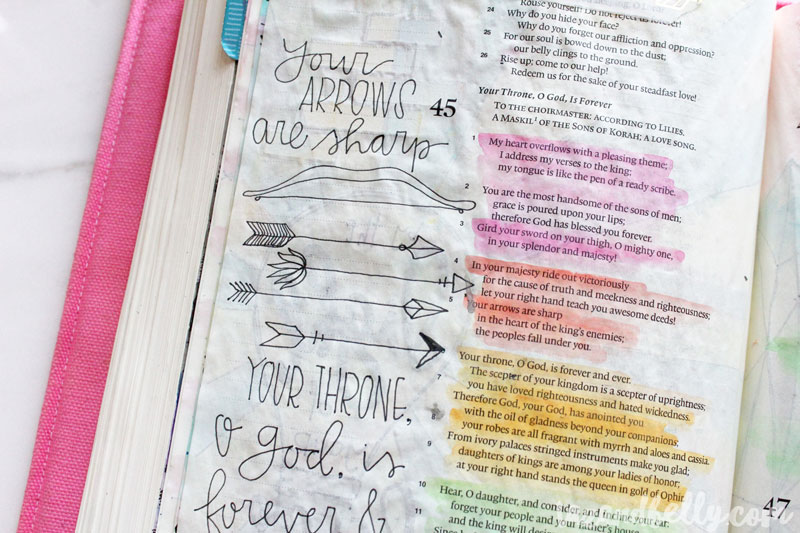 Your
ARROWS
are sharp
YOUR THRONE,
O God, is
forever &
Rouse yourself! Do not reject us forever!
24 Why do you hide your face?
Why do you forget our affliction and oppression?
25 For our soul is bowed down to the dust;
our belly clings to the ground.
26 Rise up; come to our help!
Redeem us for the sake of your steadfast love!
Your Throne, O God, Is Forever
45 TO THE CHOIRMASTER: ACCORDING TO LILIES.
A MASKIL OF THE SONS OF KORAH; A LOVE SONG.
1 My heart overflows with a pleasing theme;
I address my verses to the king;
my tongue is like the pen of a ready scribe.
2 You are the most handsome of the sons of men;
grace is poured upon your lips;
therefore God has blessed you forever.
3 Gird your sword on your thigh, O mighty one,
in your splendor and majesty!
4 In your majesty ride out victoriously
for the cause of truth and meekness and righteousness;
let your right hand teach you awesome deeds!
5 Your arrows are sharp
in the heart of the king's enemies;
the peoples fall under you.
Your throne, O God, is forever and ever.
The scepter of your kingdom is a scepter of uprightness;
7 you have loved righteousness and hated wickedness.
Therefore God, your God, has anointed you
with the oil of gladness beyond your companions;
your robes are all fragrant with myrrh and aloes and cassia.
From ivory palaces stringed instruments make you glad;
9 daughters of kings are among your ladies of honor;
at your right hand stands the queen in gold of Ophir.
10 Hear, O daughter, and consider, and incline your ear:
forget your people and your father's house,
11 and the king will
47